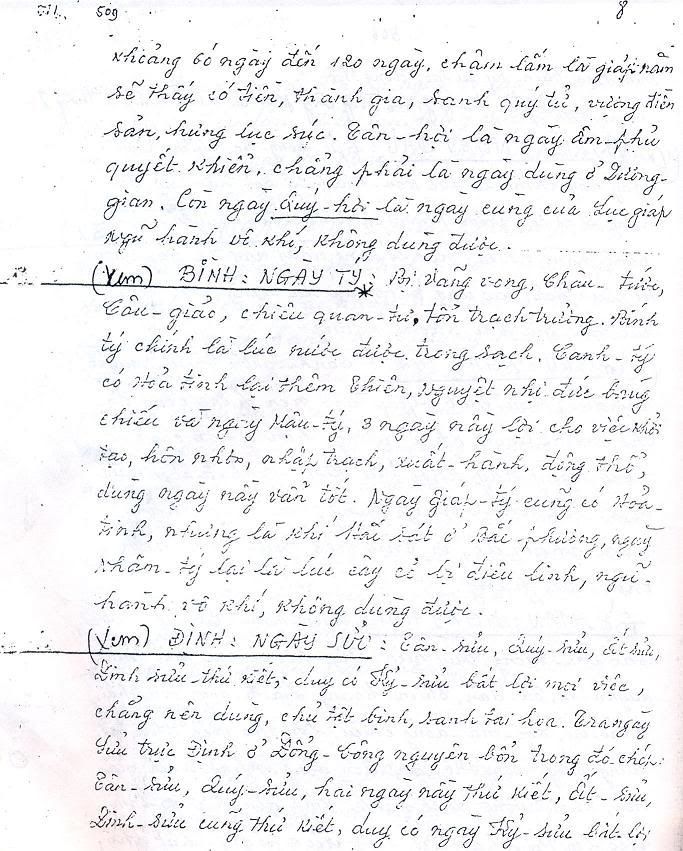 TL. 509 8
khoảng 60 ngày đến 120 ngày, chậm lắm là giáp năm
sẽ thấy có tiền, thành gia, sanh quý tử, vượng điền
sản, hưng lục súc. Tân-hợi là ngày âm-phủ
quyết khiển, chẳng phải là ngày dùng ở Dương-
gian. Còn ngày Quý-hợi là ngày cùng của Lục giáp
Ngũ hành vô khí, không dùng được.
(Xem) BÌNH: NGÀY TÝ: Bị Vãng vong, Châu-tước,
Câu-giảo, chiêu quan-tư, tổn trạch trưởng. Bính
tý chính là lúc nước được trong sạch, Canh-tý
có Hoả tinh lại thêm Thiên, Nguyệt nhị đức
chiếu và ngày Mậu-tý, 3 ngày nầy lợi cho việc khởi
tạo, hôn nhơn, nhập trạch, xuất-hành, động thổ,
dùng ngày nầy vẫn tốt. Ngày Giáp-tý cũng có Hỏa-
tinh, nhưng là khí Hắc sát ở Bắc phương, ngày
Nhâm-tý lại là lúc cây cỏ bị điêu linh, ngũ-
hành vô khí, không dùng được.
(Xem) ĐỊNH: NGÀY SỬU: Tân-sửu, Quý-sửu, Ất sửu,
Đinh sửu thứ kiết, duy có Kỷ-sửu bất lợi mọi việc,
chẳng nên dùng, chủ tật bịnh, sanh tai họa. Tra ngày
Sửu trực Định ở Đổng-Công nguyên bổn trong đó chép:
Tân-sửu, Quý-sửu, hai ngày nầy thứ kiết, Ất-sửu,
Đinh-sửu cũng thứ kiết, duy có ngày Kỷ-sửu bất lợi